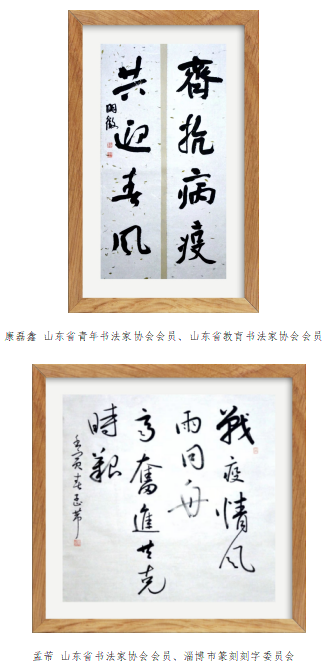 齊抗病疫
共迎春风
康磊鑫 山东省青年书法家协会会员、山东省教育书法家协会会员
戰疫情风
雨同舟
奮進共克
時艱
壬寅春孟芾
孟芾 山东省书法家协会会员、淄博市篆刻刻字委员会